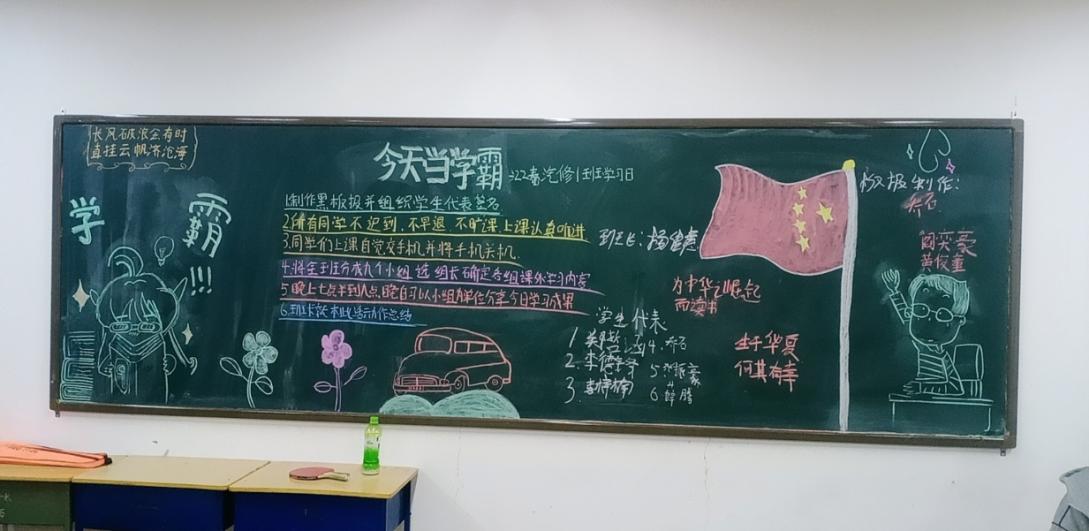 长风破浪会有时
直挂云帆济沧海
学霸!!!
今天当学霸
22春汽修1班学习日
1.制作黑板报并组织学生代表签名
2.所有同学不迟到、不早退、不旷课、上课认真听讲
3.同学们上课自觉交手机并将手机关机
4.将全班分成九个小组,选组长确定各组课外学习内容
5.晚上七点半到八点,晚自习以小组为单位分享今日学习成果
6.班长谈本此活动作总结
班长:杨
学生代表
1
2.李
3.李
4.乔石
5
6.薛腾
为中华之崛起
而读书
生于华夏
何其有幸
板报制作:
乔石
阎奕豪
黄俊童